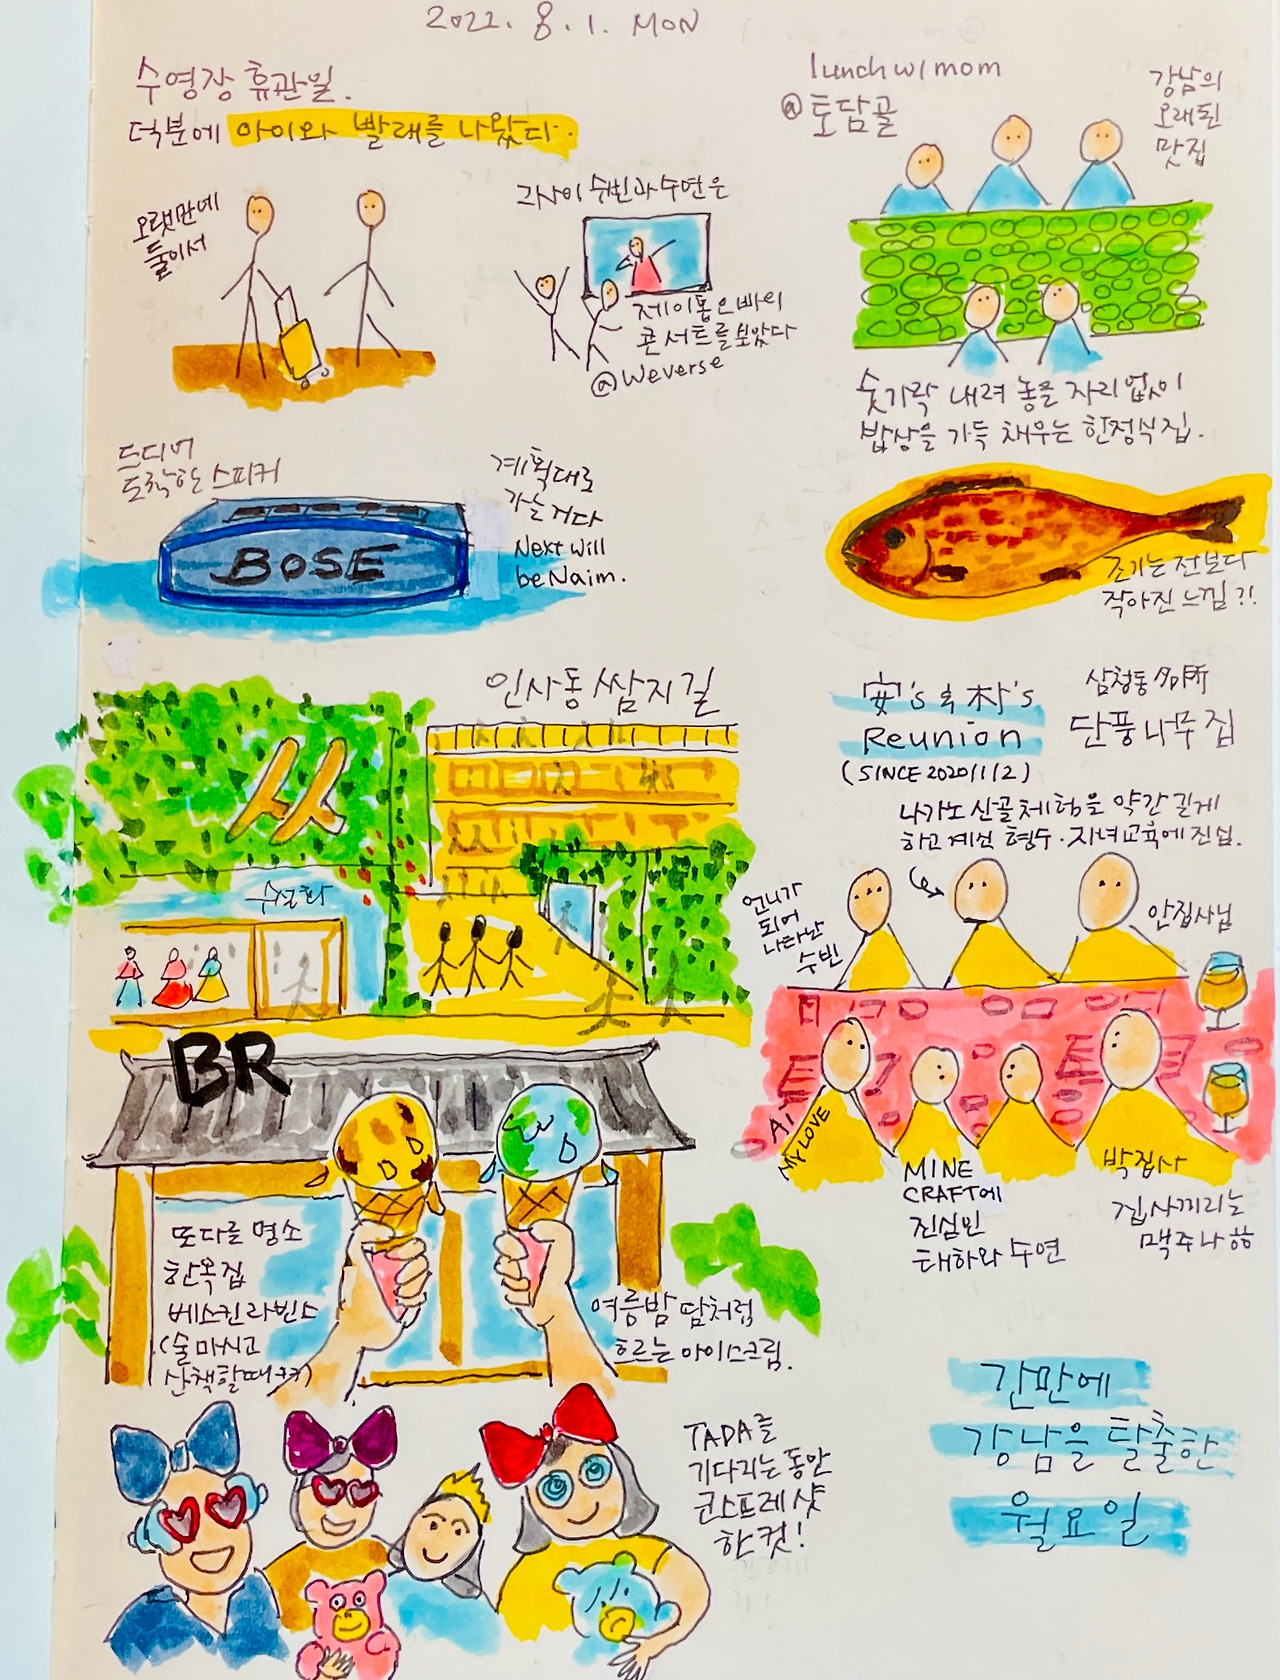 2022. 8. 1. MON
수영장 휴관일.
덕분에 아이와 빨래를 나왔다.
오랫만에
둘이서
그사이 수빈과 수연은
제이홉 오빠의
콘서트를 보았다
@Weverse
lunch w/ mom
@토담골
강남의
오래된
맛집
숫가락 내려 놓을 자리 없이
밥상을 가득 채우는 한정식집.
드디어
도착한 스피커
BOSE
계획대로
가는거다
Next will
be Naim.
조기는 전보다
작아진 느낌?!
인사동 쌈지길
쌈
수설화
安's & 朴's
Reunion
(SINCE 2020/1/2)
삼청동 名所
단풍나무집
나가노 산골체험을 약간 길게
하고 계신 형수·자녀교육에 진심.
언니가
되어
나타난
수빈
안집사님
AI
MY LOVE
MINE
CRAFT에
진심인
태하와 수연
박집사
집사끼리는
맥주나 ㅎㅎ
BR
또다른 명소
한옥집
베스킨라빈스
(술마시고
산책할때 ㅋㅋ)
여름밤 땀처럼
흐르는 아이스크림.
TADA를
기다리는 동안
코스프레 샷
한컷!
간만에
강남을 탈출한
월요일